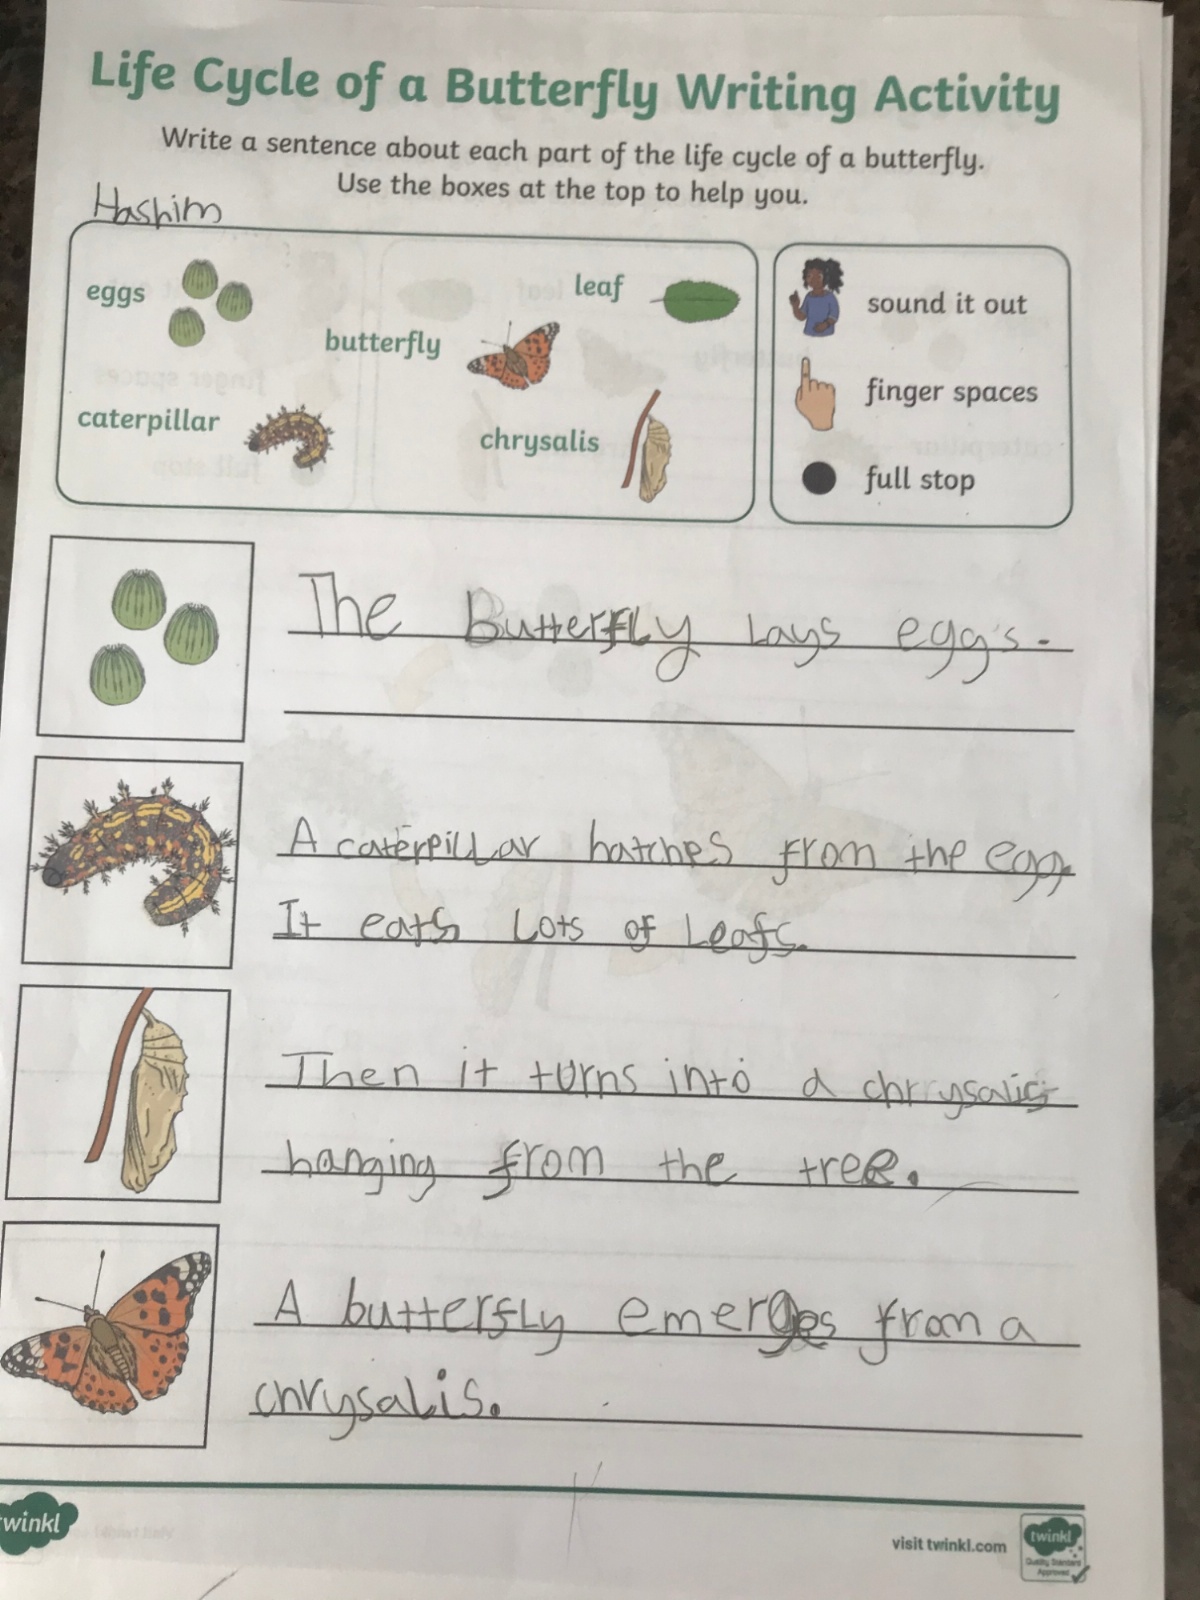 Life Cycle of a Butterfly Writing Activity
Write a sentence about each part of the life cycle of a butterfly.
Use the boxes at the top to help you.
Hashim
eggs
leaf
butterfly
caterpillar
chrysalis
sound it out
finger spaces
full stop
The Butterfly lays eggs.
A caterpillar hatches from the egg.
It eats Lots of Leafs.
Then it turns into a chrysalis
hanging from the tree.
A butterfly emerges from a
chrysalis.
twinkl
visit twinkl.com
twinkl
Quality Standard
Approved